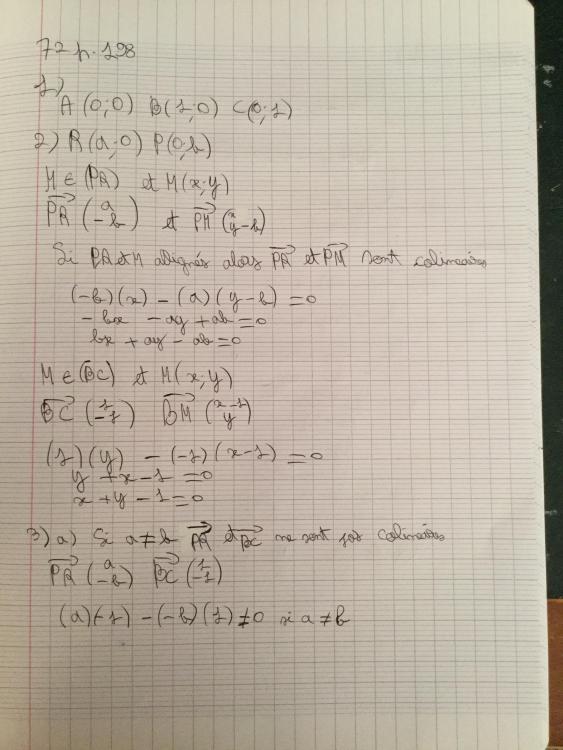 72 p.198
1)
A (0;0) B(1;0) C(0;1)
2) R(a;0) P(0;b)
M ∈ (PR) et M(x;y)
PR (a -b) et PM (x y-b)
Si P, R et M alignés alors PR et PM sont colinéaires
(-b)(x) - (a)(y-b) = 0
-bx - ay + ab = 0
bx + ay - ab = 0
M ∈ (BC) et M(x;y)
BC (1 -1) BM (x-1 y)
(1)(y) - (-1)(x-1) = 0
y + x - 1 = 0
x + y - 1 = 0
3) a) Si a ≠ b PR et BC ne sont pas colinéaires
PR (a -b) BC (1 -1)
(a)(-1) - (-b)(1) ≠ 0 si a ≠ b